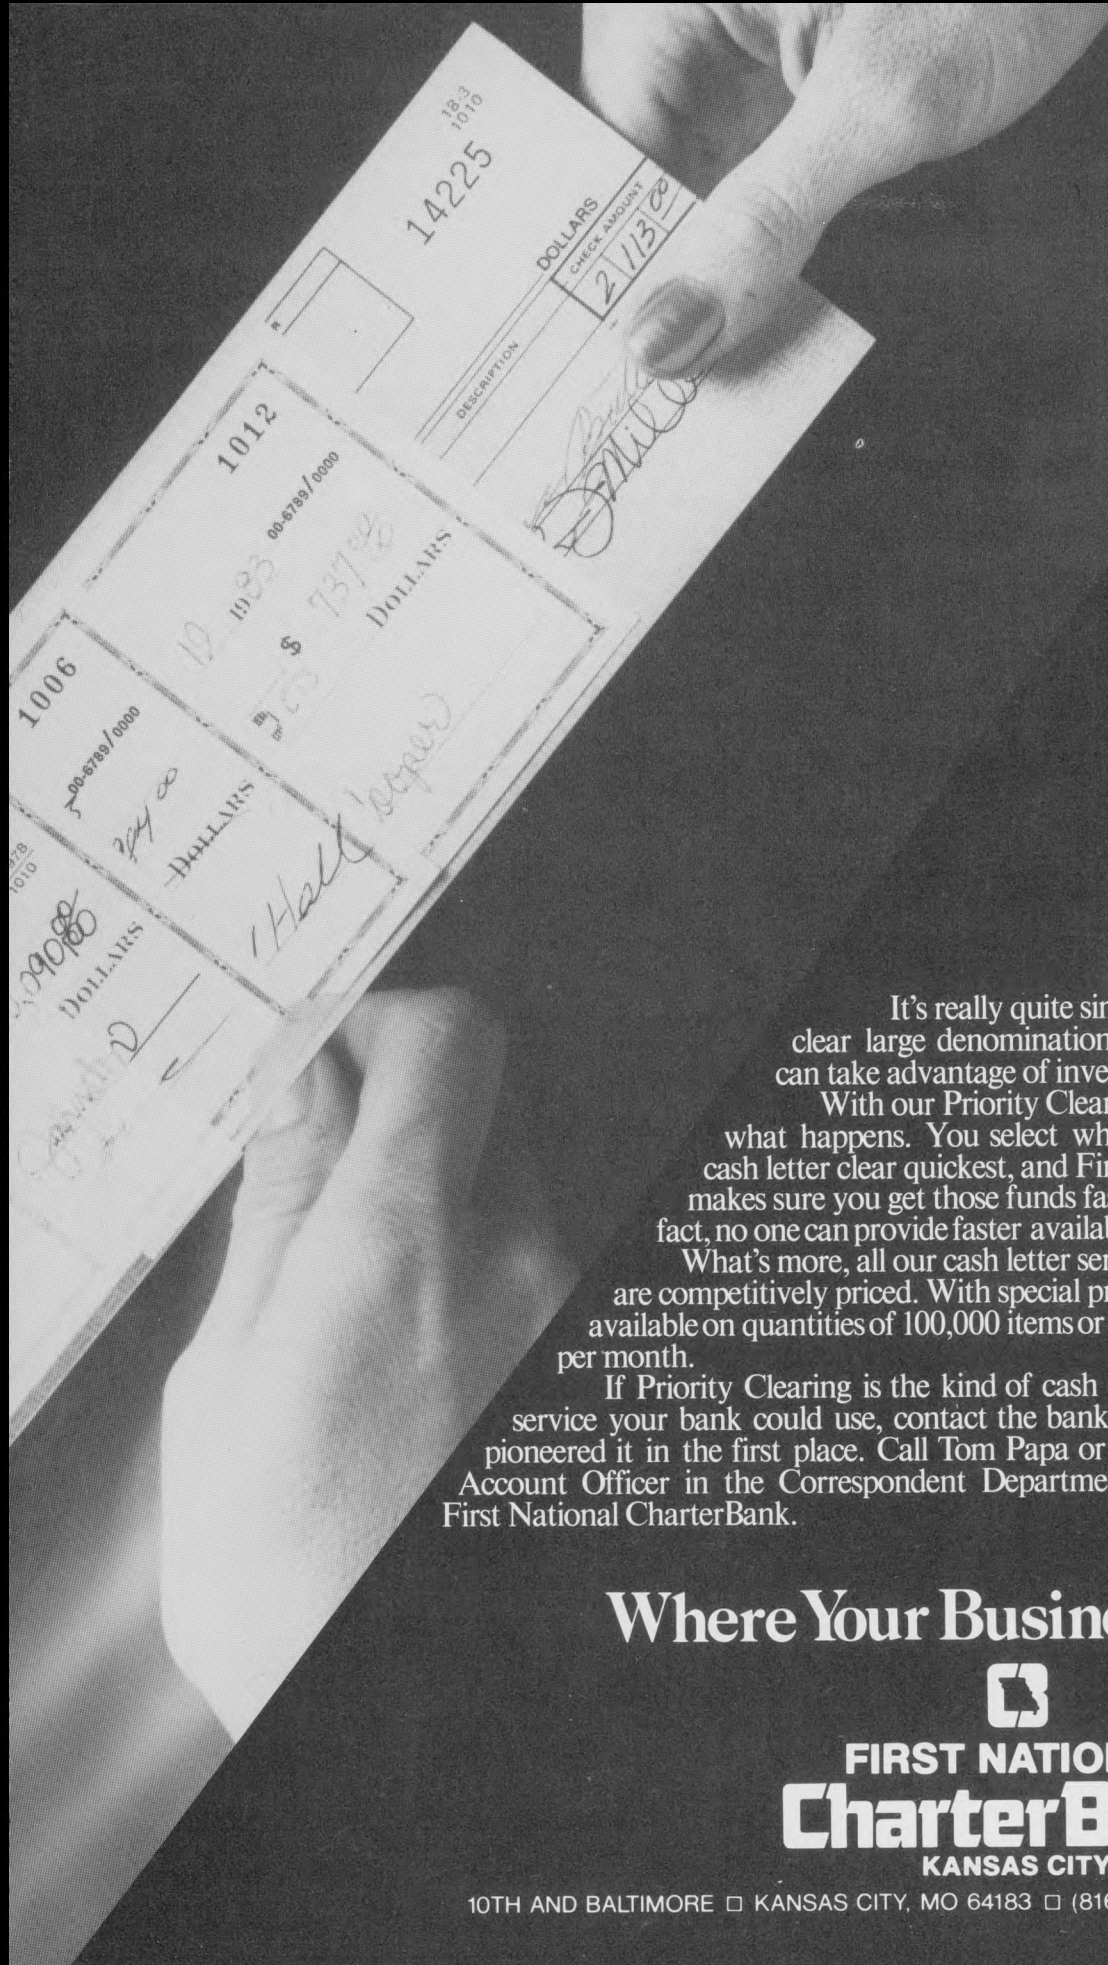 18-3
1010
14225
DOLLARS
CHECK AMOUNT
2 113 00
DESCRIPTION
1012
00-6789/0000
19 1983
$ 737
DOLLARS
1006
00-6789/0000
DOLLARS
Hall
1010
DOLLARS
It's really quite sim
clear large denomination
can take advantage of inve
With our Priority Clear
what happens. You select wh
cash letter clear quickest, and Fir
makes sure you get those funds fa
fact, no one can provide faster availab
What's more, all our cash letter ser
are competitively priced. With special pr
available on quantities of 100,000 items or
per month.
If Priority Clearing is the kind of cash
service your bank could use, contact the bank
pioneered it in the first place. Call Tom Papa or
Account Officer in the Correspondent Departme
First National CharterBank.
Where Your Busine
FIRST NATIO
CharterB
KANSAS CITY
10TH AND BALTIMORE □ KANSAS CITY, MO 64183 □ (816